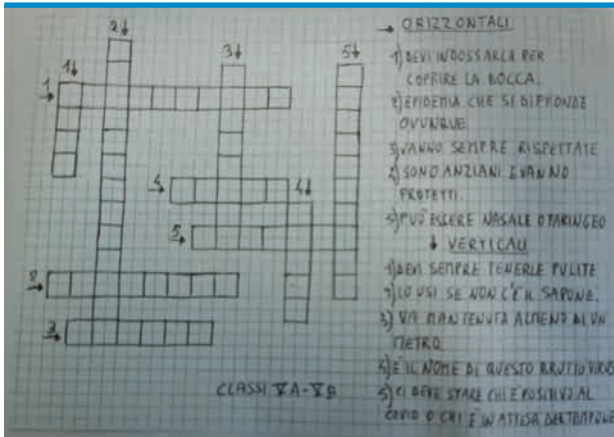 → ORIZZONTALI
1) DEVI INDOSSARLA PER
COPRIRE LA BOCCA.
2) EPIDEMIA CHE SI DIFFONDE
OVUNQUE.
3) VANNO SEMPRE RISPETTATE
4) SONO ANZIANI E VANNO
PROTETTI.
5) PUÒ ESSERE NASALE O FARINGEO
↓ VERTICALI
1) DEVI SEMPRE TENERLE PULITE
2) LO USI SE NON C'È IL SAPONE.
3) VA MANTENUTA ALMENO AD UN
METRO.
4) È IL NOME DI QUESTO BRUTTO VIRUS
5) CI DEVE STARE CHI È POSITIVO AL
COVID O CHI È IN ATTESA DEL TAMPONE
2↓
3↓
5↓
1↓
1→
4→
4↓
5→
2→
3→
CLASSI VA-VB